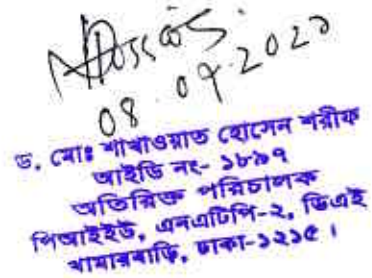 08.07.2020
ড. মোঃ শাখাওয়াত হোসেন শরীফ
আইডি নং- ১৮৯৭
অতিরিক্ত পরিচালক
পিআইইউ, এনএটিপি-২, ডিএই
খামারবাড়ি, ঢাকা-১২১৫।